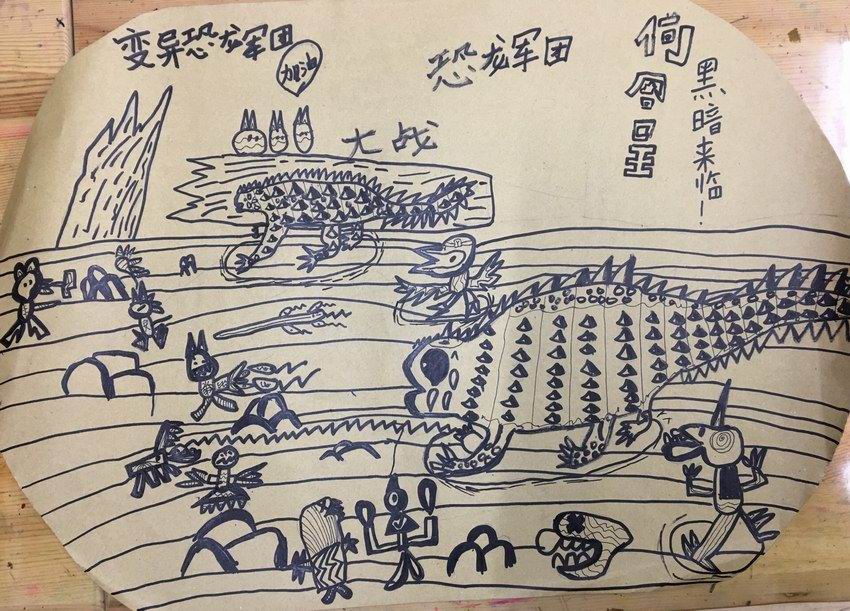 变异恐龙军团
加油
大战
恐龙军团
黑暗来临!